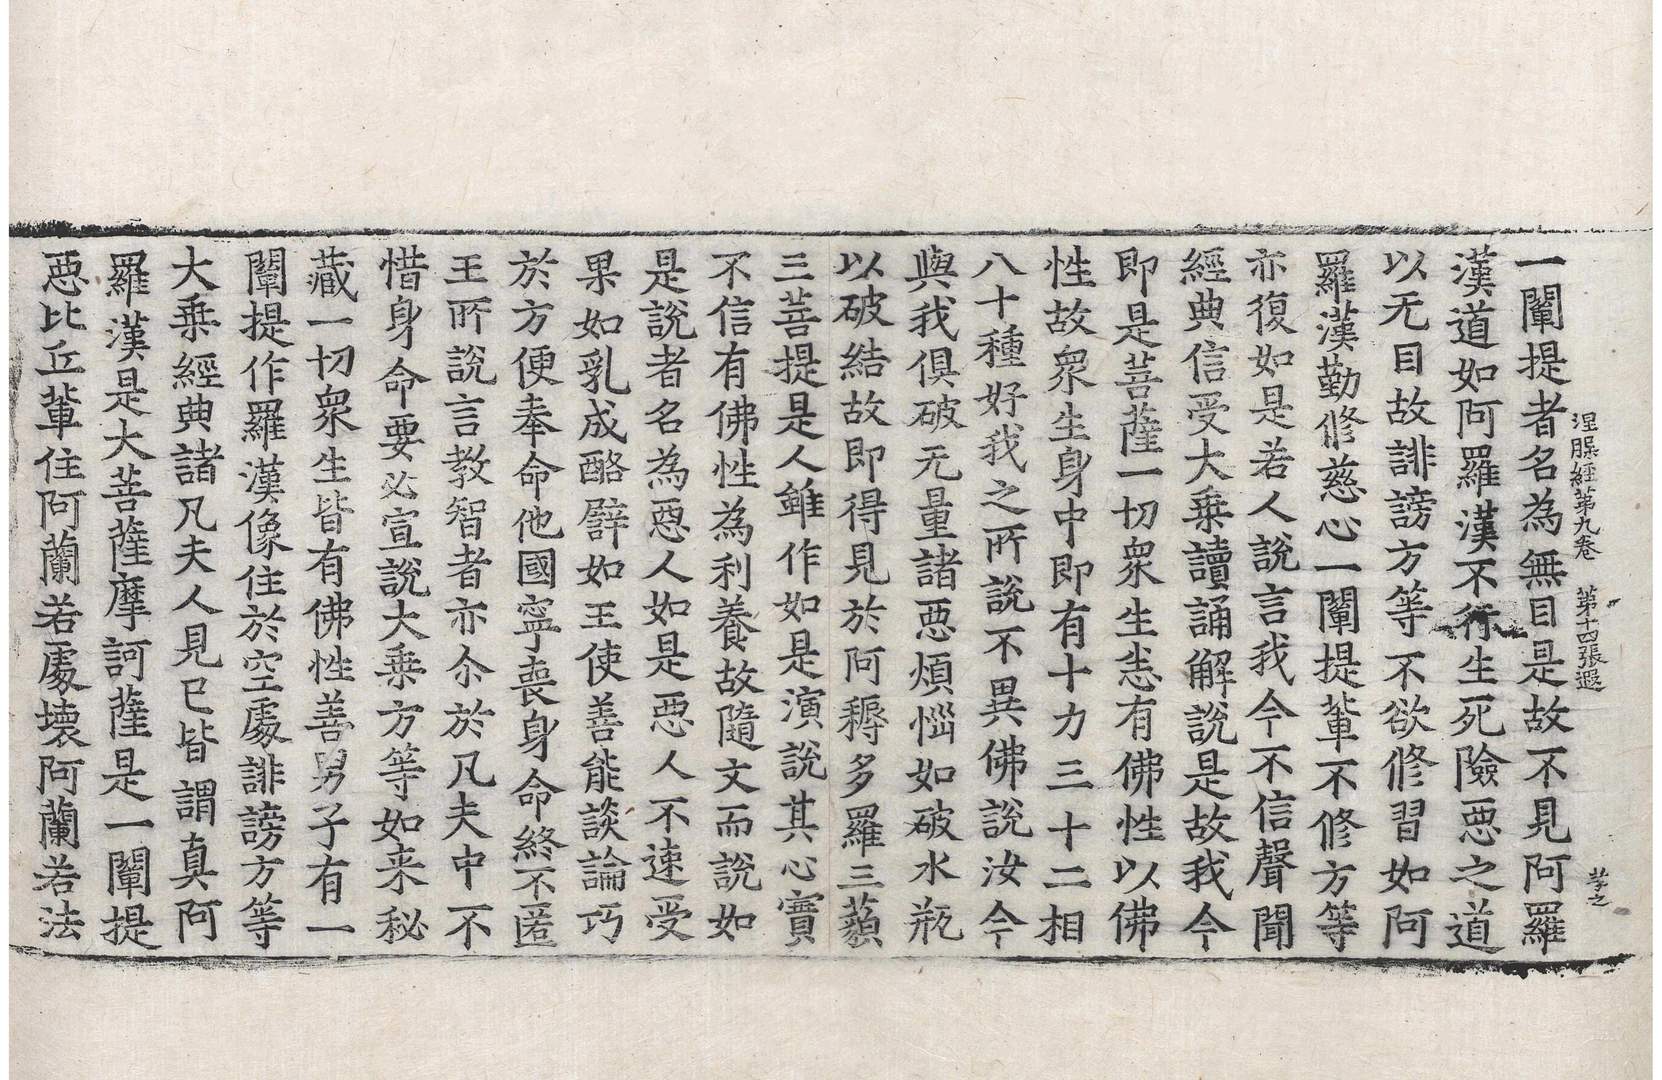 涅槃經第九卷　第十四張遐　孝之
一闡提者名為無目是故不見阿羅
漢道如阿羅漢不行生死險惡之道
以无目故誹謗方等不欲修習如阿
羅漢勤修慈心一闡提輩不修方等
亦復如是若人說言我今不信聲聞
經典信受大乘讀誦解說是故我今
即是菩薩一切衆生悉有佛性以佛
性故衆生身中即有十力三十二相
八十種好我之所說不異佛說汝今
與我俱破无量諸惡煩惱如破水瓶
以破結故即得見於阿耨多羅三藐
三菩提是人雖作如是演說其心實
不信有佛性為利養故隨文而說如
是說者名為惡人如是惡人不速受
果如乳成酪譬如王使善能談論巧
於方便奉命他國寧喪身命終不匿
王所說言教智者亦尒於凡夫中不
惜身命要必宣說大乘方等如来秘
藏一切衆生皆有佛性善男子有一
闡提作羅漢像住於空處誹謗方等
大乘經典諸凡夫人見已皆謂真阿
羅漢是大菩薩摩訶薩是一闡提
惡比丘輩住阿蘭若處壞阿蘭若法